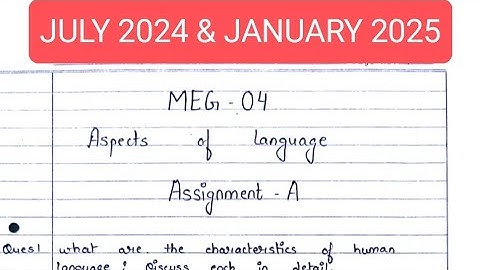 JULY 2024 & JANUARY 2025
MEG - 04
Aspects of language
Assignment - A
Ques1 what are the characteristics of human
language ? Discuss each in detail.